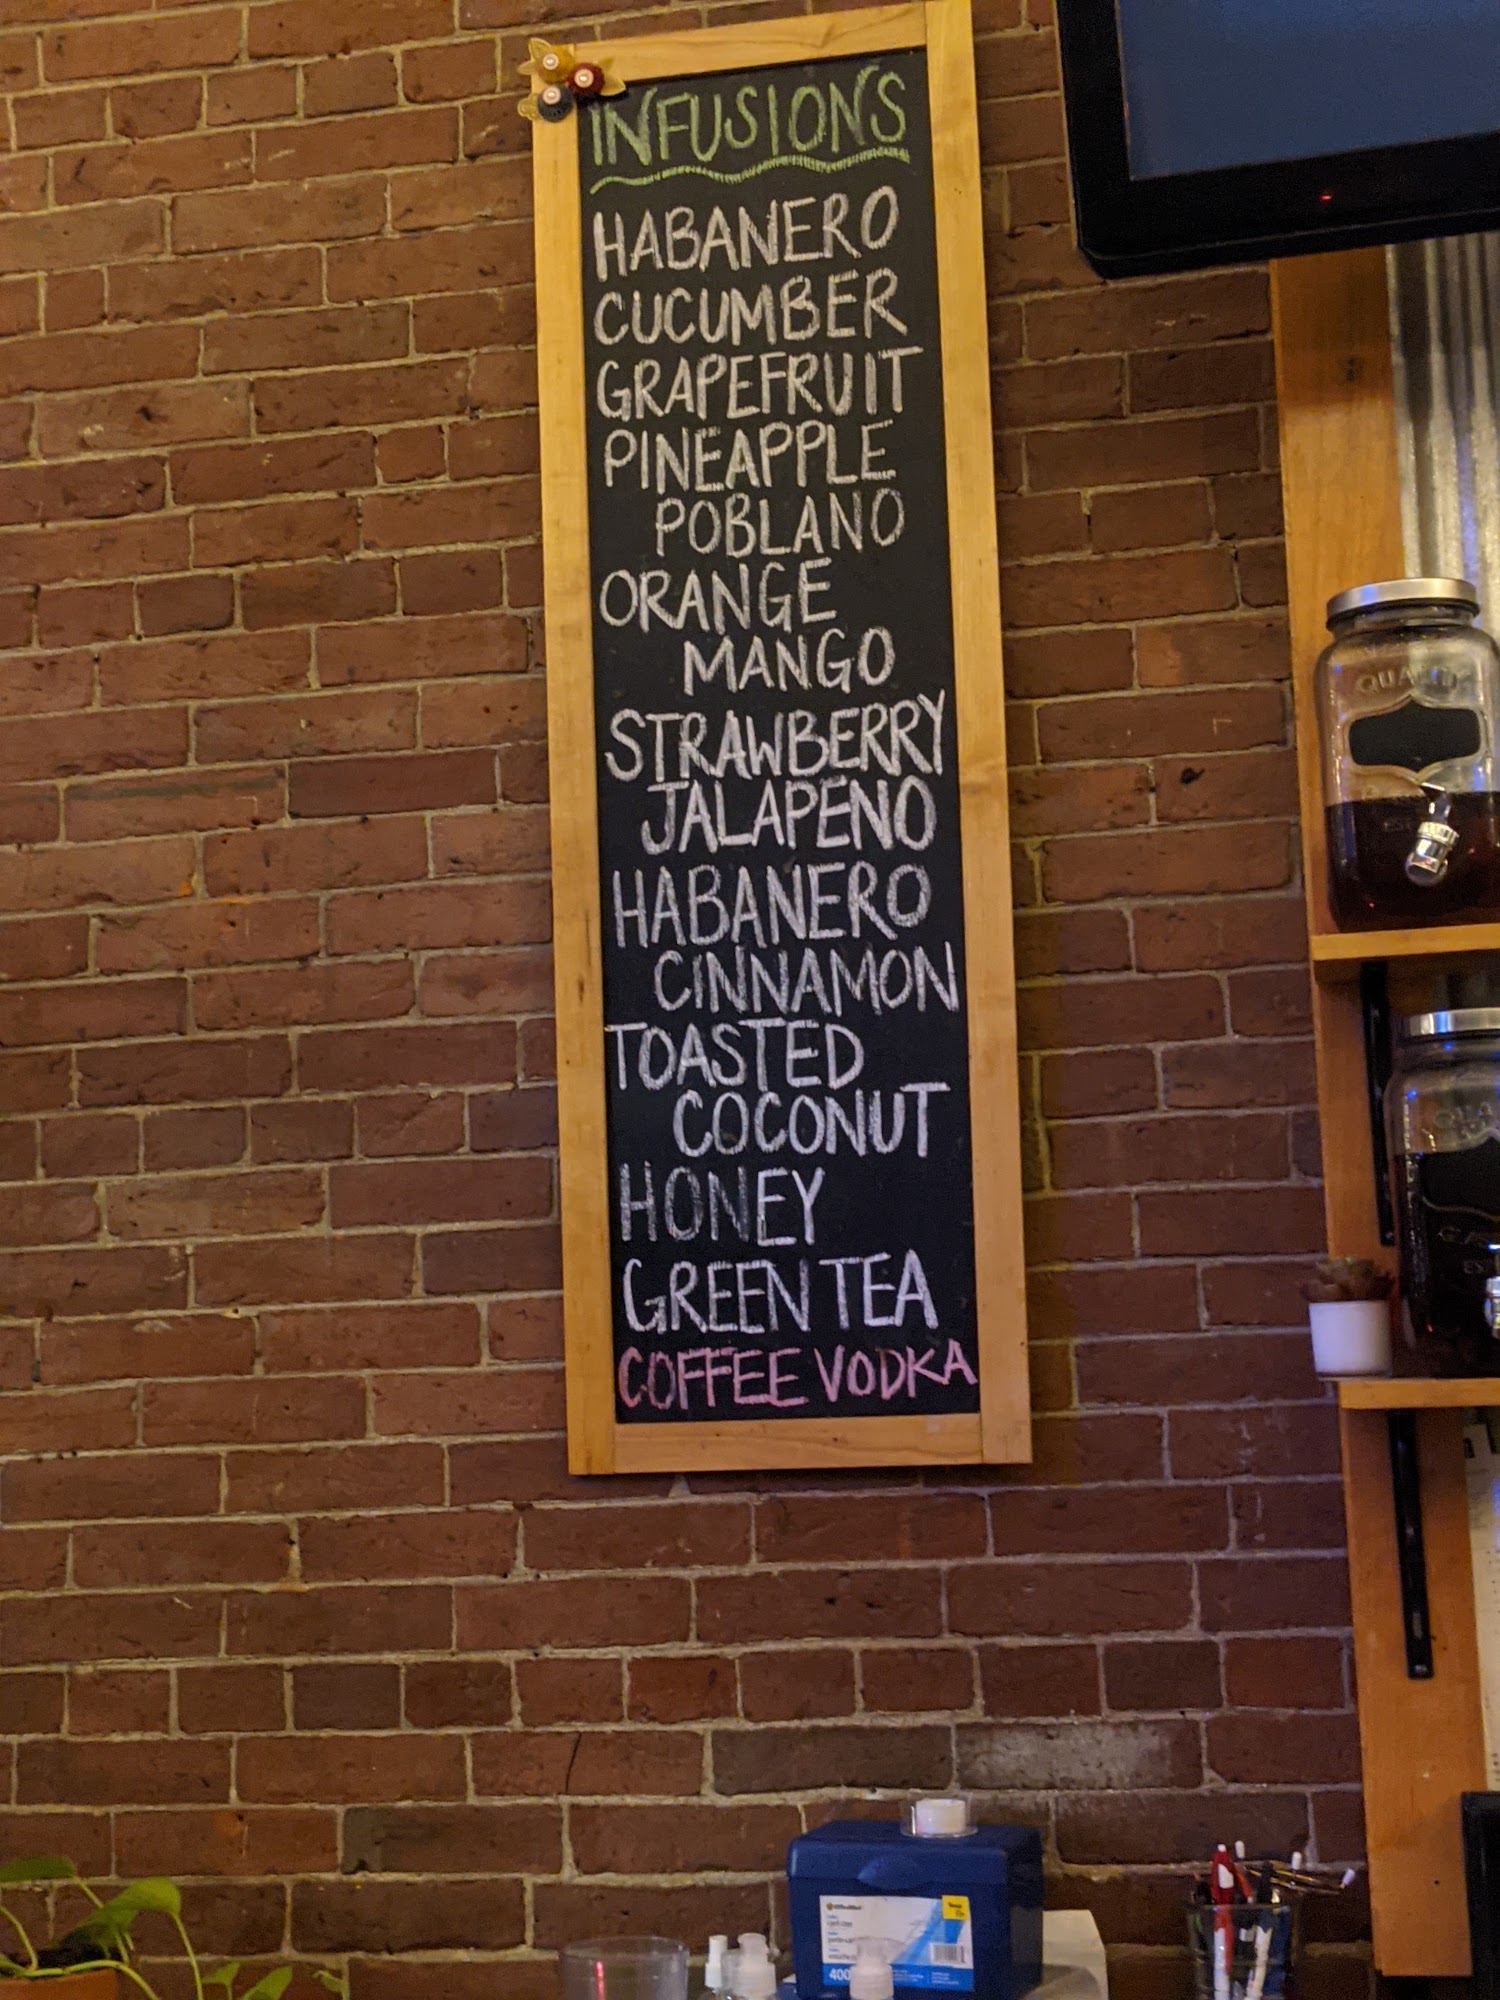 INFUSIONS
HABANERO
CUCUMBER
GRAPEFRUIT
PINEAPPLE
POBLANO
ORANGE
MANGO
STRAWBERRY
JALAPENO
HABANERO
CINNAMON
TOASTED
COCONUT
HONEY
GREEN TEA
COFFEE VODKA
QUALITY
400